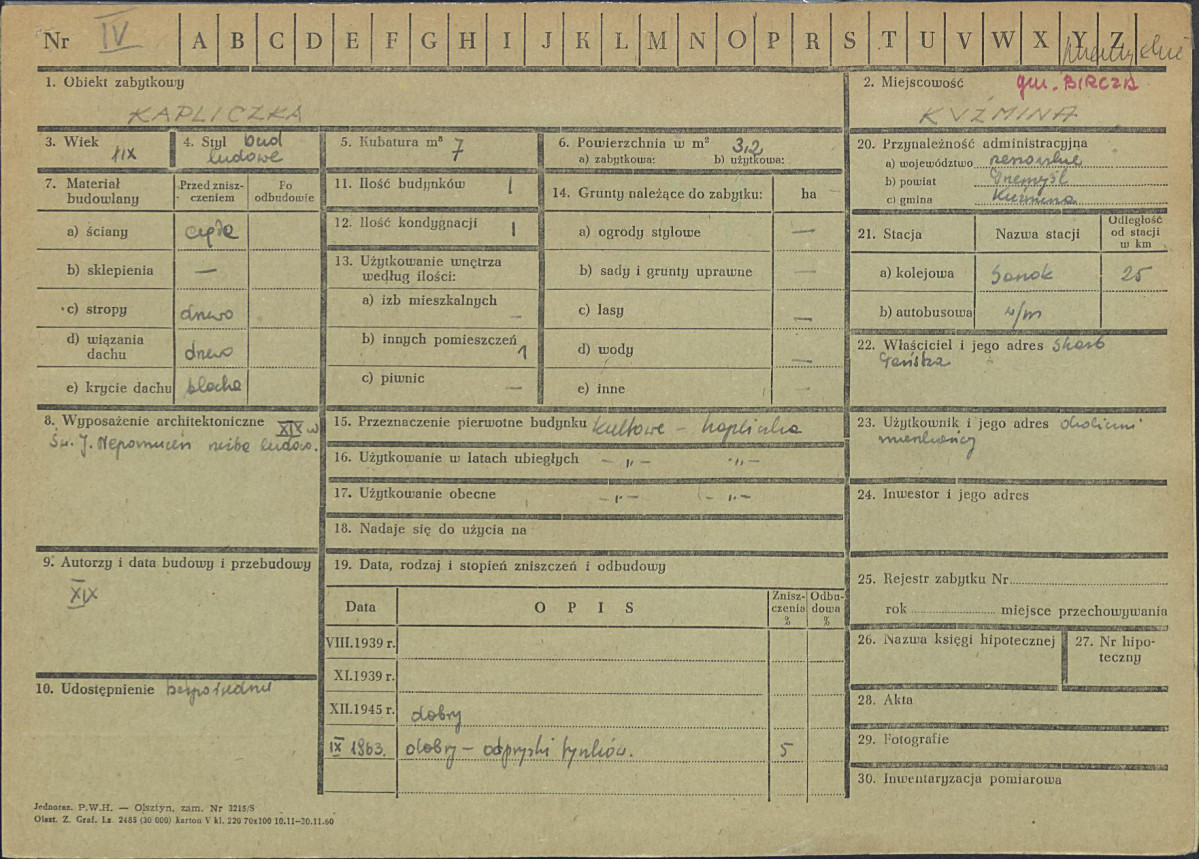 Nr IV A B C D E F G H I J K L M N O P R S T U V W X Y Z
1. Obiekt zabytkowy
KAPLICZKA
2. Miejscowość gm. BIRCZA
KUŹMINA
3. Wiek
XIX
4. Styl bud
ludowe
5. Kubatura m³ 7
6. Powierzchnia w m² 3,2
a) zabytkowa: b) użytkowa:
20. Przynależność administracyjna
a) województwo rzeszowskie
b) powiat Przemyśl
c) gmina Kuźmina
7. Materiał budowlany
Przed zniszczeniem
Po odbudowie
a) ściany cegła
b) sklepienia —
c) stropy drewo
d) wiązania dachu drewo
e) krycie dachu blacha
11. Ilość budynków 1
12. Ilość kondygnacji 1
13. Użytkowanie wnętrza
według ilości:
a) izb mieszkalnych —
b) innych pomieszczeń 1
c) piwnic —
14. Grunty należące do zabytku: ha
a) ogrody stylowe —
b) sady i grunty uprawne —
c) lasy —
d) wody —
e) inne —
21. Stacja Nazwa stacji Odległość od stacji w km
a) kolejowa Sanok 25
b) autobusowa w/m
22. Właściciel i jego adres Skarb
Państwa
8. Wyposażenie architektoniczne XIX w
Św. J. Nepomucen rzeźba ludow.
15. Przeznaczenie pierwotne budynku kultowe – kapliczka
16. Użytkowanie w latach ubiegłych – „ – „ –
17. Użytkowanie obecne – „ – – „ –
18. Nadaje się do użycia na
23. Użytkownik i jego adres okoliczni
mieszkańcy
24. Inwestor i jego adres
9. Autorzy i data budowy i przebudowy
XIX
10. Udostępnienie bezpośrednie
19. Data, rodzaj i stopień zniszczeń i odbudowy
Data OPIS Zniszczenia % Odbudowa %
VIII.1939 r.
XI.1939 r.
XII.1945 r. dobry
IX 1963. dobry – odpryski tynków. 5
25. Rejestr zabytku Nr
rok miejsce przechowywania
26. Nazwa księgi hipotecznej
27. Nr hipoteczny
28. Akta
29. Fotografie
30. Inwentaryzacja pomiarowa
Jednoraz. P.W.H. — Olsztyn, zam. Nr 3215/S
Olszt. Z. Graf. Lz. 2485 (30 000) karton V kl. 220 70x100 10.11—30.11.60